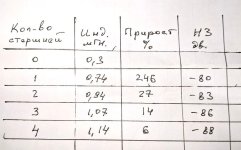 Кол-во старшней | Инд. мГн. | Прирост % | НЗ дв.
0 | 0,3 | |
1 | 0,74 | 246 | -80
2 | 0,94 | 27 | -83
3 | 1,07 | 14 | -86
4 | 1,14 | 6 | -88